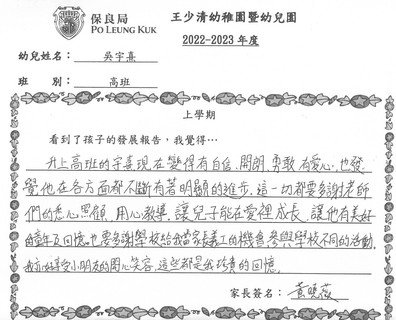 保良局
PO LEUNG KUK
王少清幼稚園暨幼兒園
2022-2023 年度
幼兒姓名： 吳宇熹
班 別： 高班
上學期
看到了孩子的發展報告，我覺得…
升上高班的宇熹現在變得有自信、開朗、勇敢、有愛心，也發
覺他在各方面都不斷有著明顯的進步，這一切都要多謝老師
們的悉心照顧，用心教導，讓兒子能在愛裡成長，讓他有美好
的童年及回憶。也要多謝學校給我當家長義工的機會，參與學校不同的活動，
我亦好享受小朋友的開心笑容，這些都是我珍貴的回憶。
家長簽名： 黃曉薇